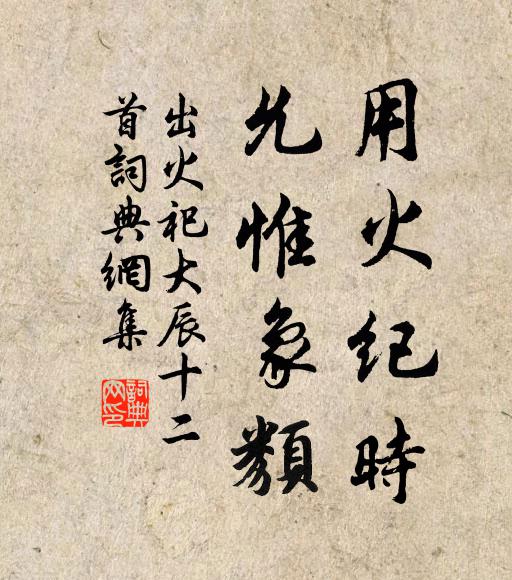 用火紀時
允惟象類
出火祀大辰十二
首詞典網集
詞典
网印